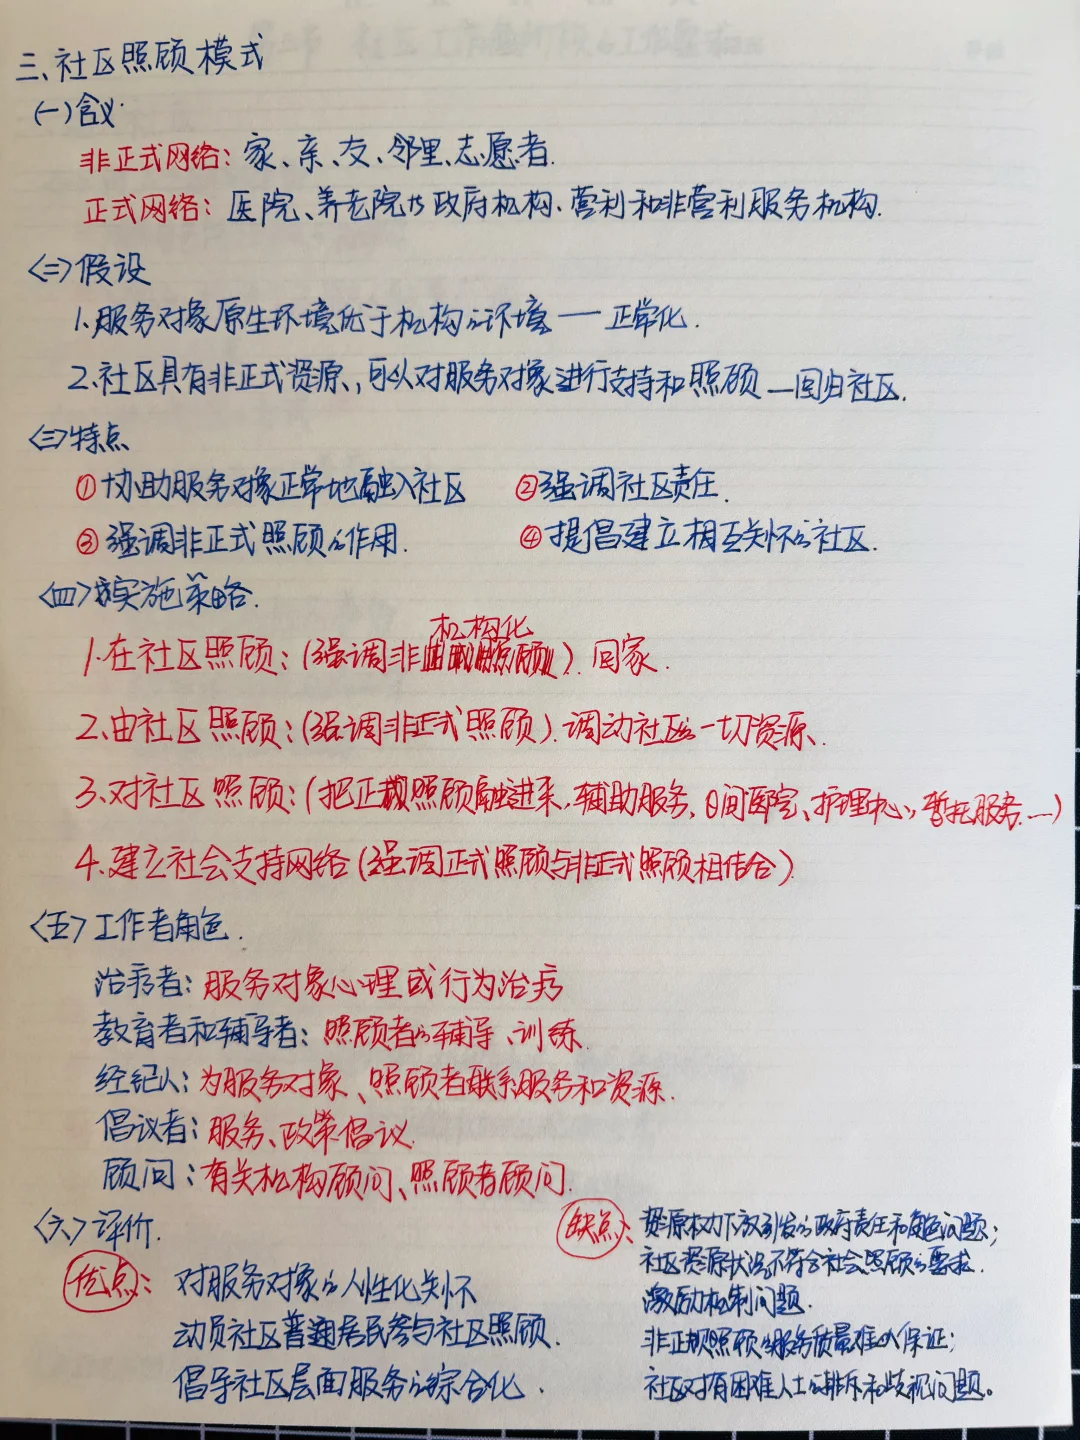 三、社区照顾模式
(一)含义
非正式网络：家、亲、友、邻里、志愿者.
正式网络：医院、养老院的政府机构、营利和非营利服务机构.
<二>假设
1.服务对象原生环境优于机构的环境——正常化.
2.社区具有非正式资源,可以对服务对象进行支持和照顾—回归社区.
<三>特点
①协助服务对象正常地融入社区 ②强调社区责任.
③强调非正式照顾的作用. ④提倡建立相互关怀的社区.
<四>实施策略.
机构化
1.在社区照顾：(强调非). 回家.
2.由社区照顾：(强调非正式照顾).调动社区的一切资源.
3.对社区照顾：(把正式照顾融进来,辅助服务,日间医院、护理中心,暂托服务...)
4.建立社会支持网络(强调正式照顾与非正式照顾相结合)
<五>工作者角色.
治疗者：服务对象心理或行为治疗
教育者和辅导者：照顾者的辅导、训练.
经纪人：为服务对象、照顾者联系服务和资源.
倡议者：服务、政策倡议.
顾问：有关机构顾问、照顾者顾问.
<六>评价.
优点：对服务对象的人性化关怀
动员社区普通居民参与社区照顾.
倡导社区层面服务的综合化.
缺点：资源权力下放引发的政府责任和角色问题；
社区资源状况不符合社会照顾的要求.
激励机制问题.
非正规照顾的服务质量难以保证；
社区对有困难人士的排斥和歧视问题。